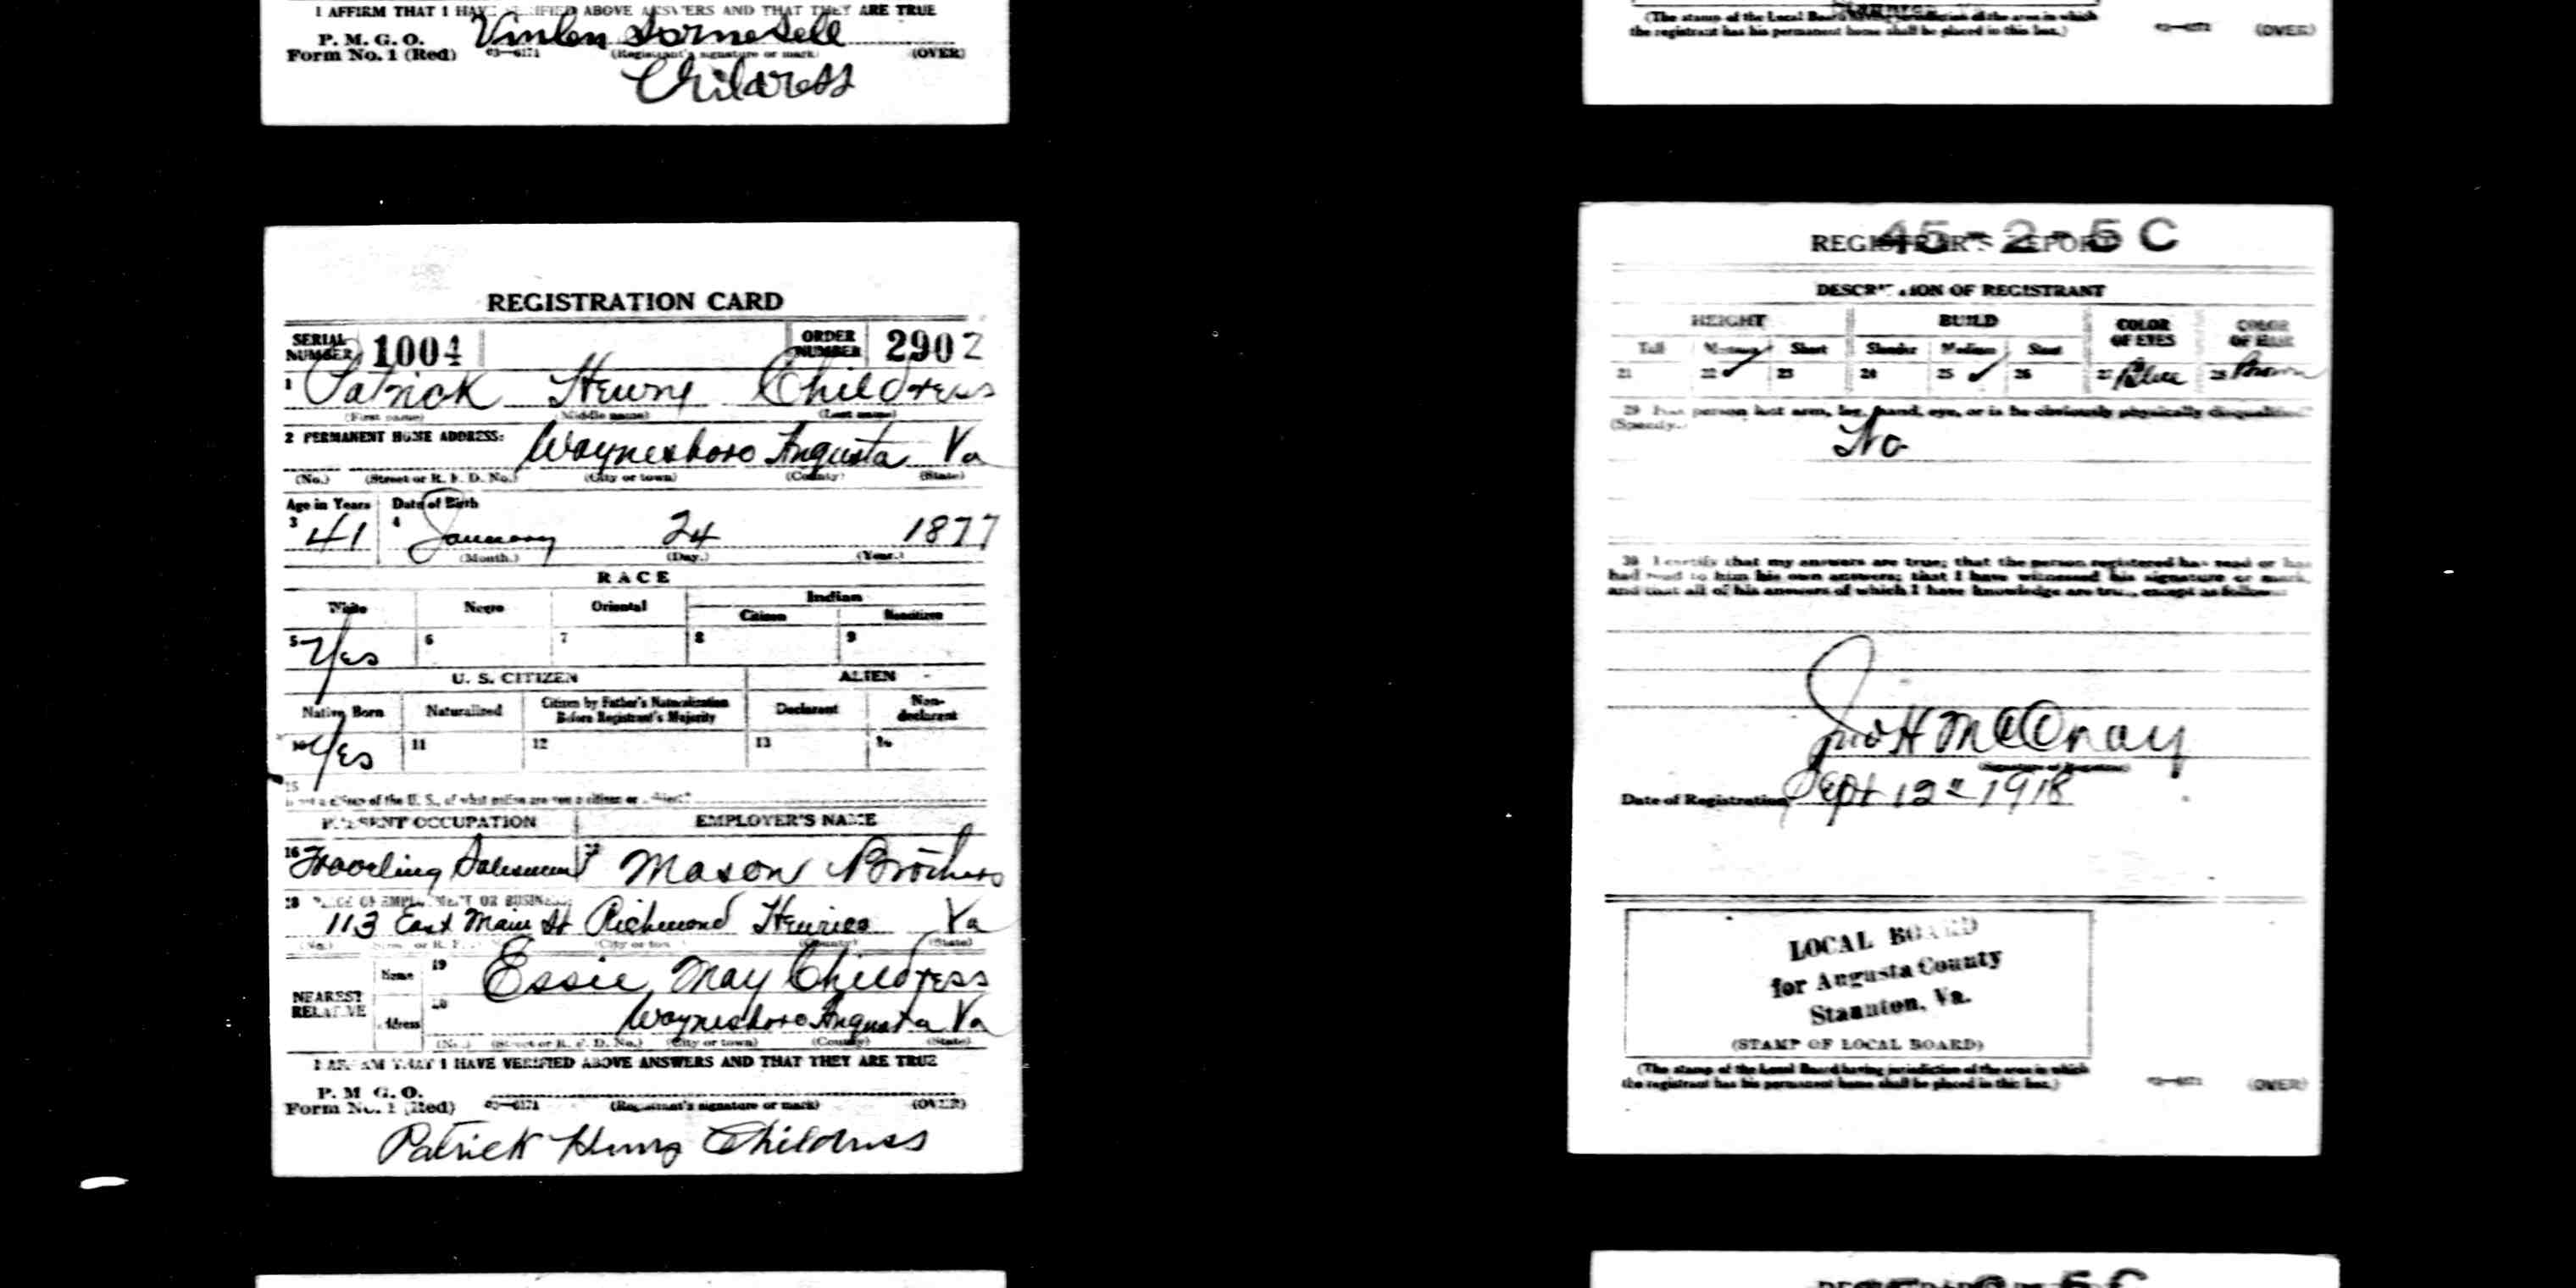 I AFFIRM THAT I HAVE VERIFIED ABOVE ANSWERS AND THAT THEY ARE TRUE
P. M. G. O.
Form No. 1 (Red) 03—6171 (Registrant's signature or mark) (OVER)
Childress
(The stamp of the Local Board having jurisdiction of the area in which
the registrant has his permanent home shall be placed in this box.) 03—6171 (OVER)
REGISTRATION CARD
SERIAL NUMBER 1004 ORDER NUMBER 2902
1 Patrick Henry Childress
(First name) (Middle name) (Last name)
2 PERMANENT HOME ADDRESS: Waynesboro Augusta Va
(No.) (Street or R. F. D. No.) (City or town) (County) (State)
Age in Years Date of Birth
3 41 4 January 24 1877
(Month.) (Day.) (Year.)
RACE
White Negro Oriental Indian
Citizen Noncitizen
5 Yes 6 7 8 9
U. S. CITIZEN ALIEN
Native Born Naturalized Citizen by Father's Naturalization Before Registrant's Majority Declarant Non-declarant
10 Yes 11 12 13 14
15
not a citizen of the U. S., of what nation are you a citizen or subject?
PRESENT OCCUPATION EMPLOYER'S NAME
16 Traveling Salesman 17 Mason Brothers
18 PLACE OF EMPLOYMENT OR BUSINESS:
113 East Main St Richmond Henrico Va
(No.) (Street or R. F. (City or town) (County) (State)
NEAREST RELATIVE
Name 19 Essie May Childress
Address 20 Waynesboro Augusta Va
(No.) (Street or R. F. D. No.) (City or town) (County) (State)
I AFFIRM THAT I HAVE VERIFIED ABOVE ANSWERS AND THAT THEY ARE TRUE
P. M. G. O.
Form No. 1 (Red) 03—6171 (Registrant's signature or mark) (OVER)
Patrick Henry Childress
45-2-5 C
REGISTRAR'S REPORT
DESCRIPTION OF REGISTRANT
HEIGHT BUILD COLOR OF EYES COLOR OF HAIR
Tall Medium Short Slender Medium Stout
21 22 ✓ 23 24 25 ✓ 26 27 Blue 28 Brown
29 Has person lost arm, leg, hand, eye, or is he obviously physically disqualified?
(Specify.)
No
30 I certify that my answers are true; that the person registered has read or has
had read to him his own answers; that I have witnessed his signature or mark,
and that all of his answers of which I have knowledge are true, except as follows:
Jno H McCray
(Signature of Registrar)
Date of Registration Sept 12" 1918
LOCAL BOARD
for Augusta County
Staunton, Va.
(STAMP OF LOCAL BOARD)
(The stamp of the Local Board having jurisdiction of the area in which
the registrant has his permanent home shall be placed in this box.) 03—6171 (OVER)
5 C